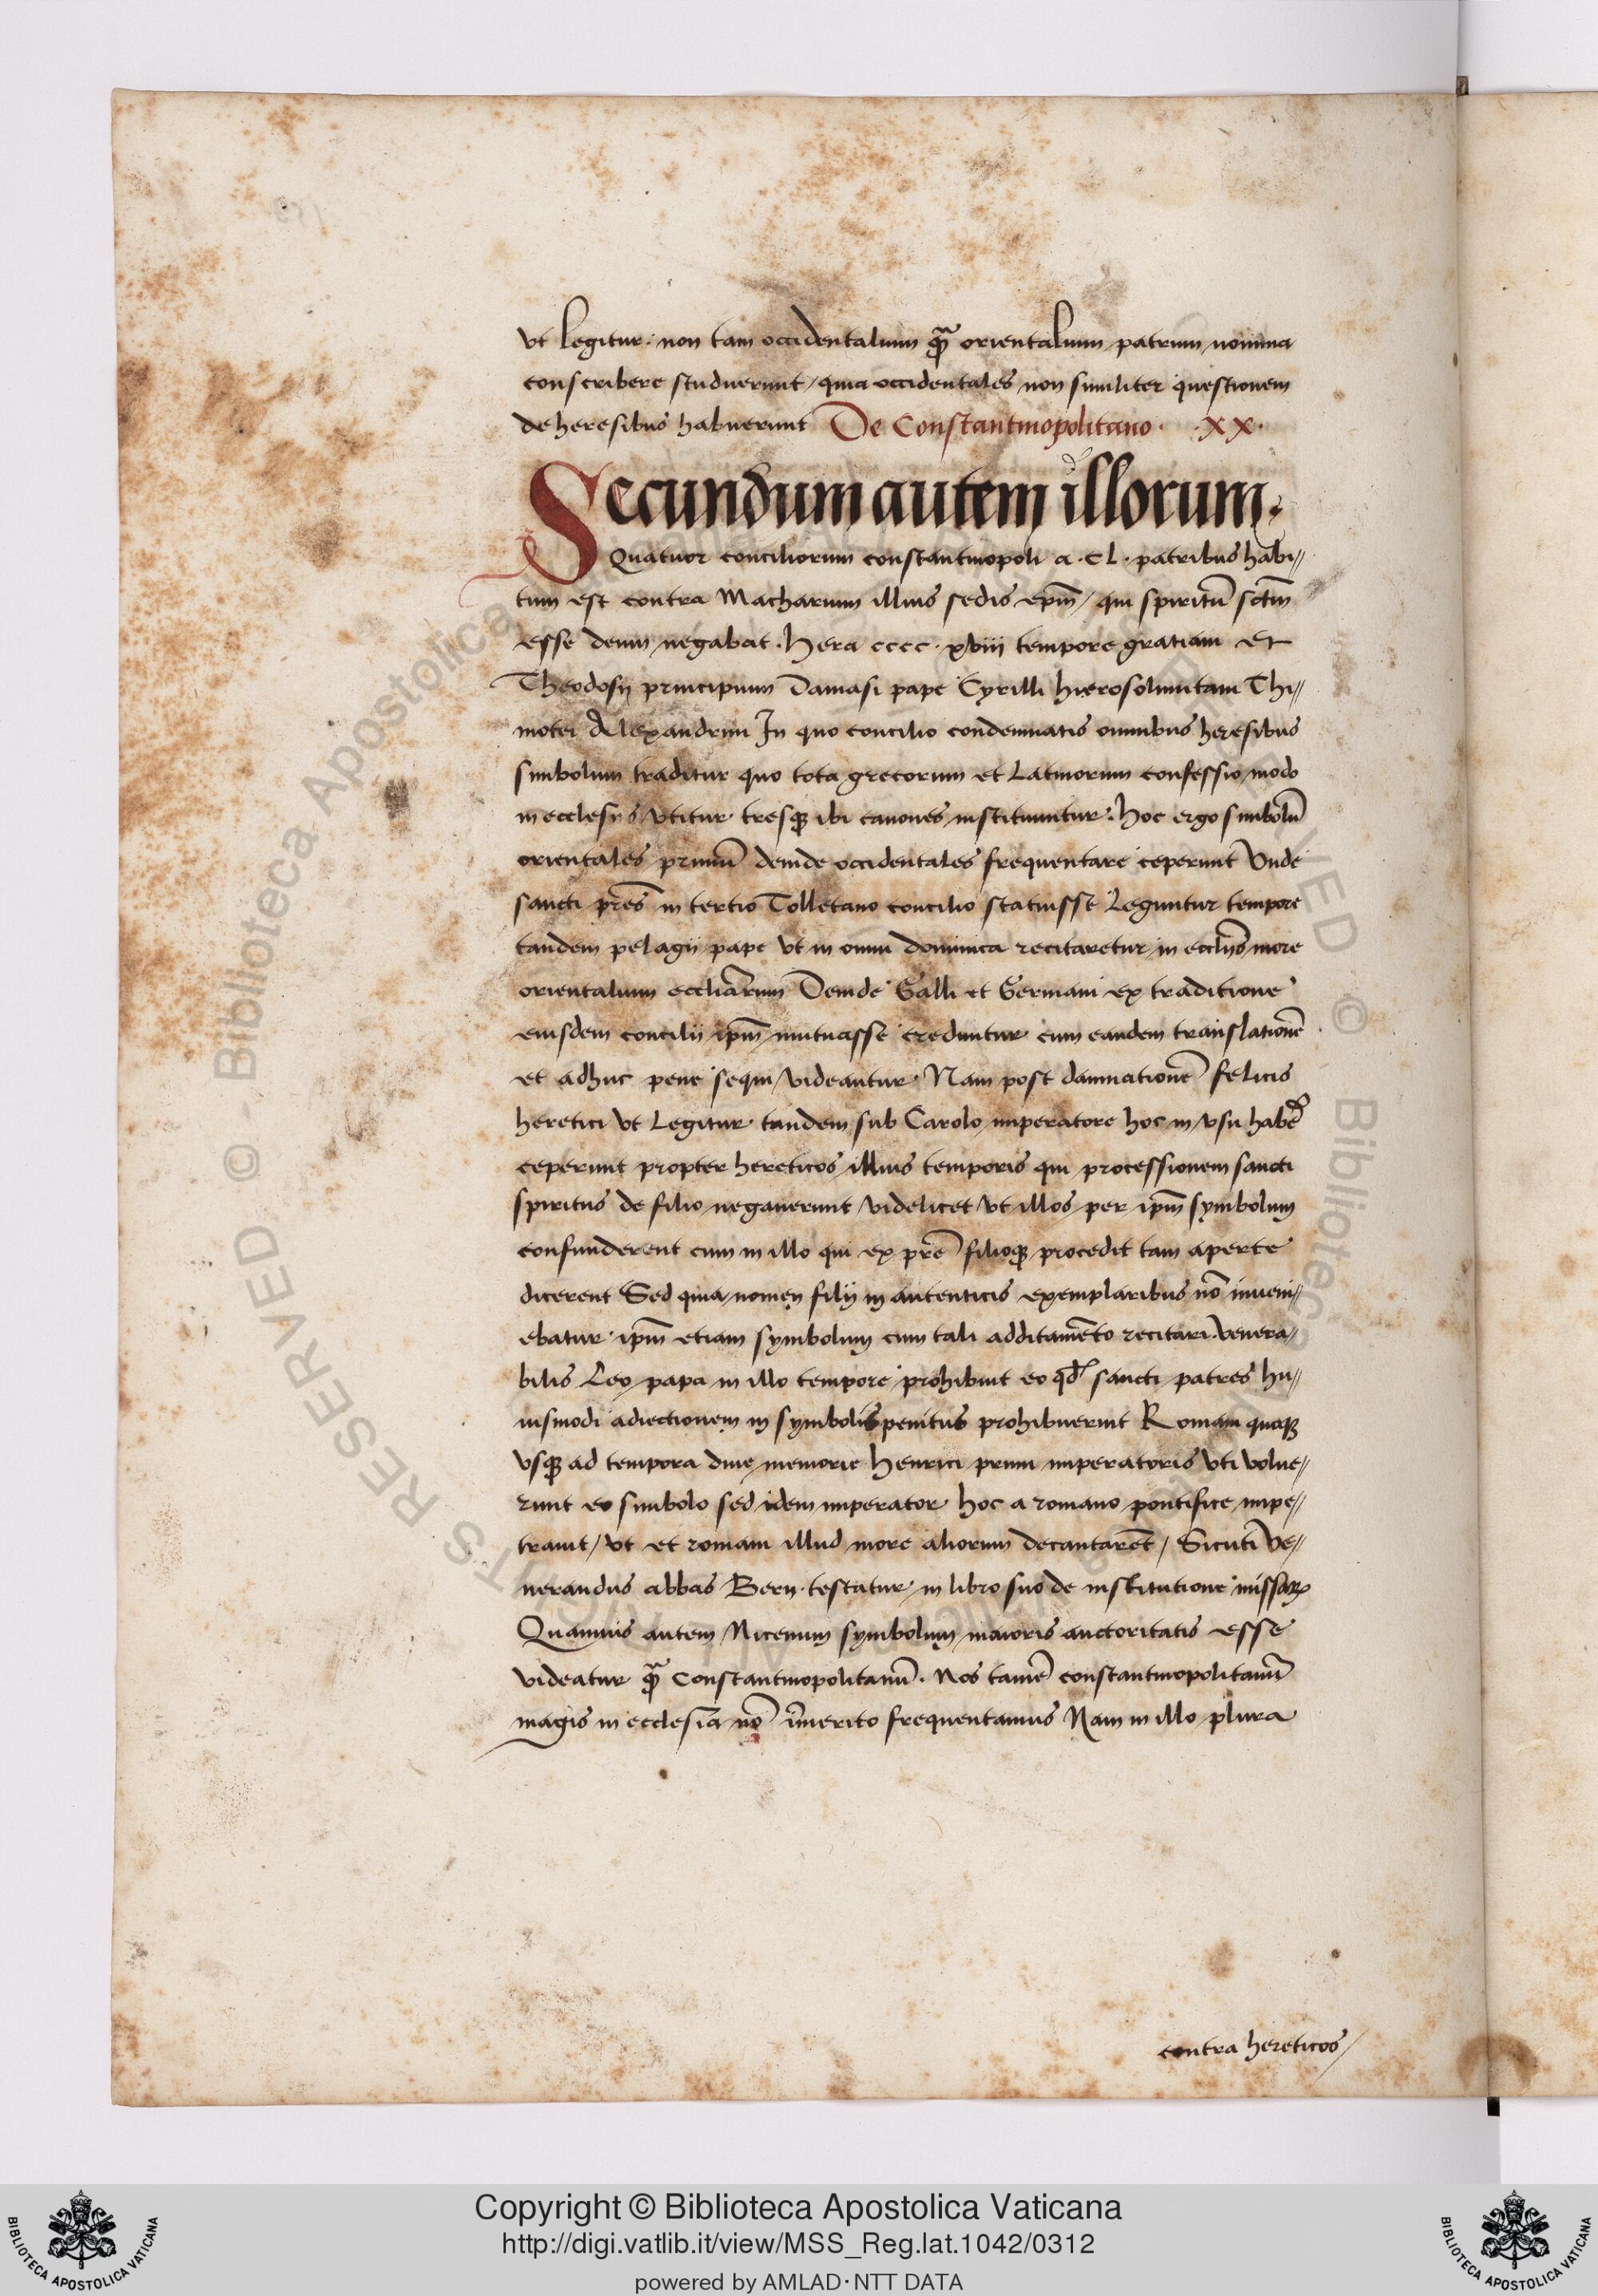 vt legitur. non tam occidentalium quā orientalium patrum nomina
conscribere studuerunt / quia occidentales non similiter questionem
de heresibus habuerunt De Constantinopolitano. .XX.
Secundum autem illorum.
Quatuor conciliorum constantinopoli a .CL. patribus habi//
tum est contra Macharium illius sedis ep̄m / qui spiritū sctm̄
esse deum negabat. Hera cccc. xviii tempore gratiani et
Theodosij principum Damasi pape Cyrilli hierosolimitani Thi//
motei Alexandrini In quo concilio condemnatis omnibus heresibus
simbolum traditur quo tota grecorum et Latinorum confessio modo
in ecclesijs vtitur tresqꝫ ibi canones instituuntur. hoc ergo simbolū
orientales primū deinde occidentales frequentare ceperunt Unde
sancti pr̄es in tertio Tolletano concilio statuisse Leguntur tempore
tandem pelagii pape vt in omni dominica recitaretur in eccl̄ijs more
orientalium eccl̄iarum Deinde Galli et Germani ex traditione
eiusdem concilii ip̄m mutuasse creduntur cum eandem translationē
et adhuc pene sequi videantur. Nam post damnationē felicis
heretici vt Legitur tandem sub Carolo imperatore hoc in vsu haber̄
ceperunt propter hereticos illius temporis qui processionem sancti
spiritus de filio negauerunt videlicet vt illos per ip̄m symbolum
confunderent cum in illo qui ex pr̄e filioqꝫ procedit tam aperte
dicerent Sed quia nomen filij in autenticis exemplaribus nō inueni//
ebatur ip̄m etiam symbolum cum tali additamēto recitari. venera//
bilis Leo papa in illo tempore prohibuit eo qd̄ sancti patres hu//
iusmodi adiectionem in symbolis penitus prohibuerunt Romani quoqꝫ
vsqꝫ ad tempora diue memorie Henrici primi imperatoris vti volue//
runt eo simbolo sed idem imperator hoc a romano pontifice impe//
trauit / vt et romani illud more aliorum decantarēt / Sicuti ve//
nerandus abbas Bern. testatur in libro suo de institutione missaꝝ
Quamuis autem Nicenum symbolum maioris auctoritatis esse
videatur quā Constantinopolitanū. Nos tamē constantinopolitanū
magis in ecclesia nō īmerito frequentamus Nam in illo plura
contra hereticos /
Copyright © Biblioteca Apostolica Vaticana
http://digi.vatlib.it/view/MSS_Reg.lat.1042/0312
powered by AMLAD·NTT DATA
BIBLIOTECA APOSTOLICA VATICANA
BIBLIOTECA APOSTOLICA VATICANA